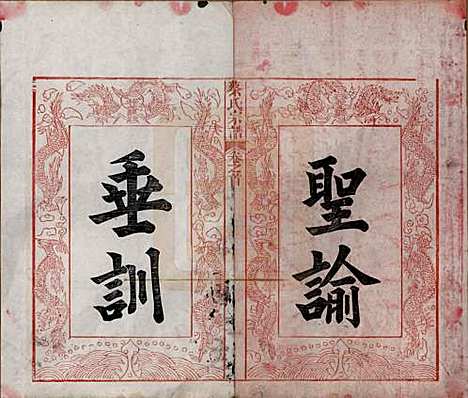 聖諭
垂訓
氏宗譜
卷之首